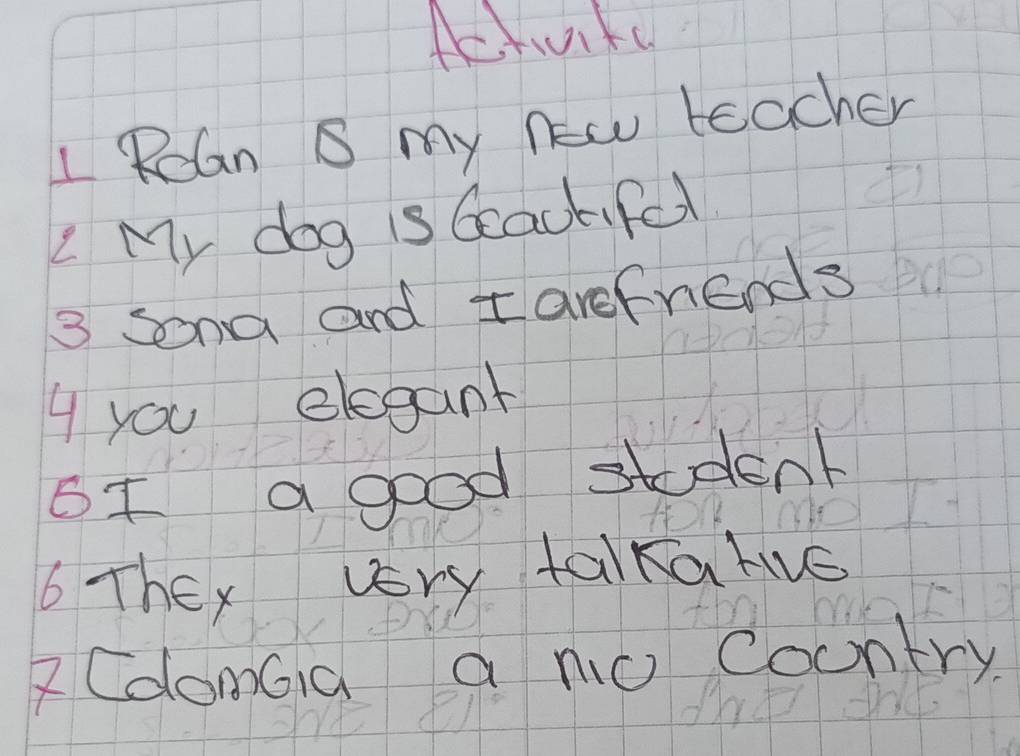 Activity
1 Roban is my new teacher
2 My dog is beautiful.
3 Sona and I are friends
4 you elegant
5 I a good student
6 They very talkative
7 Colombia a nic Country.